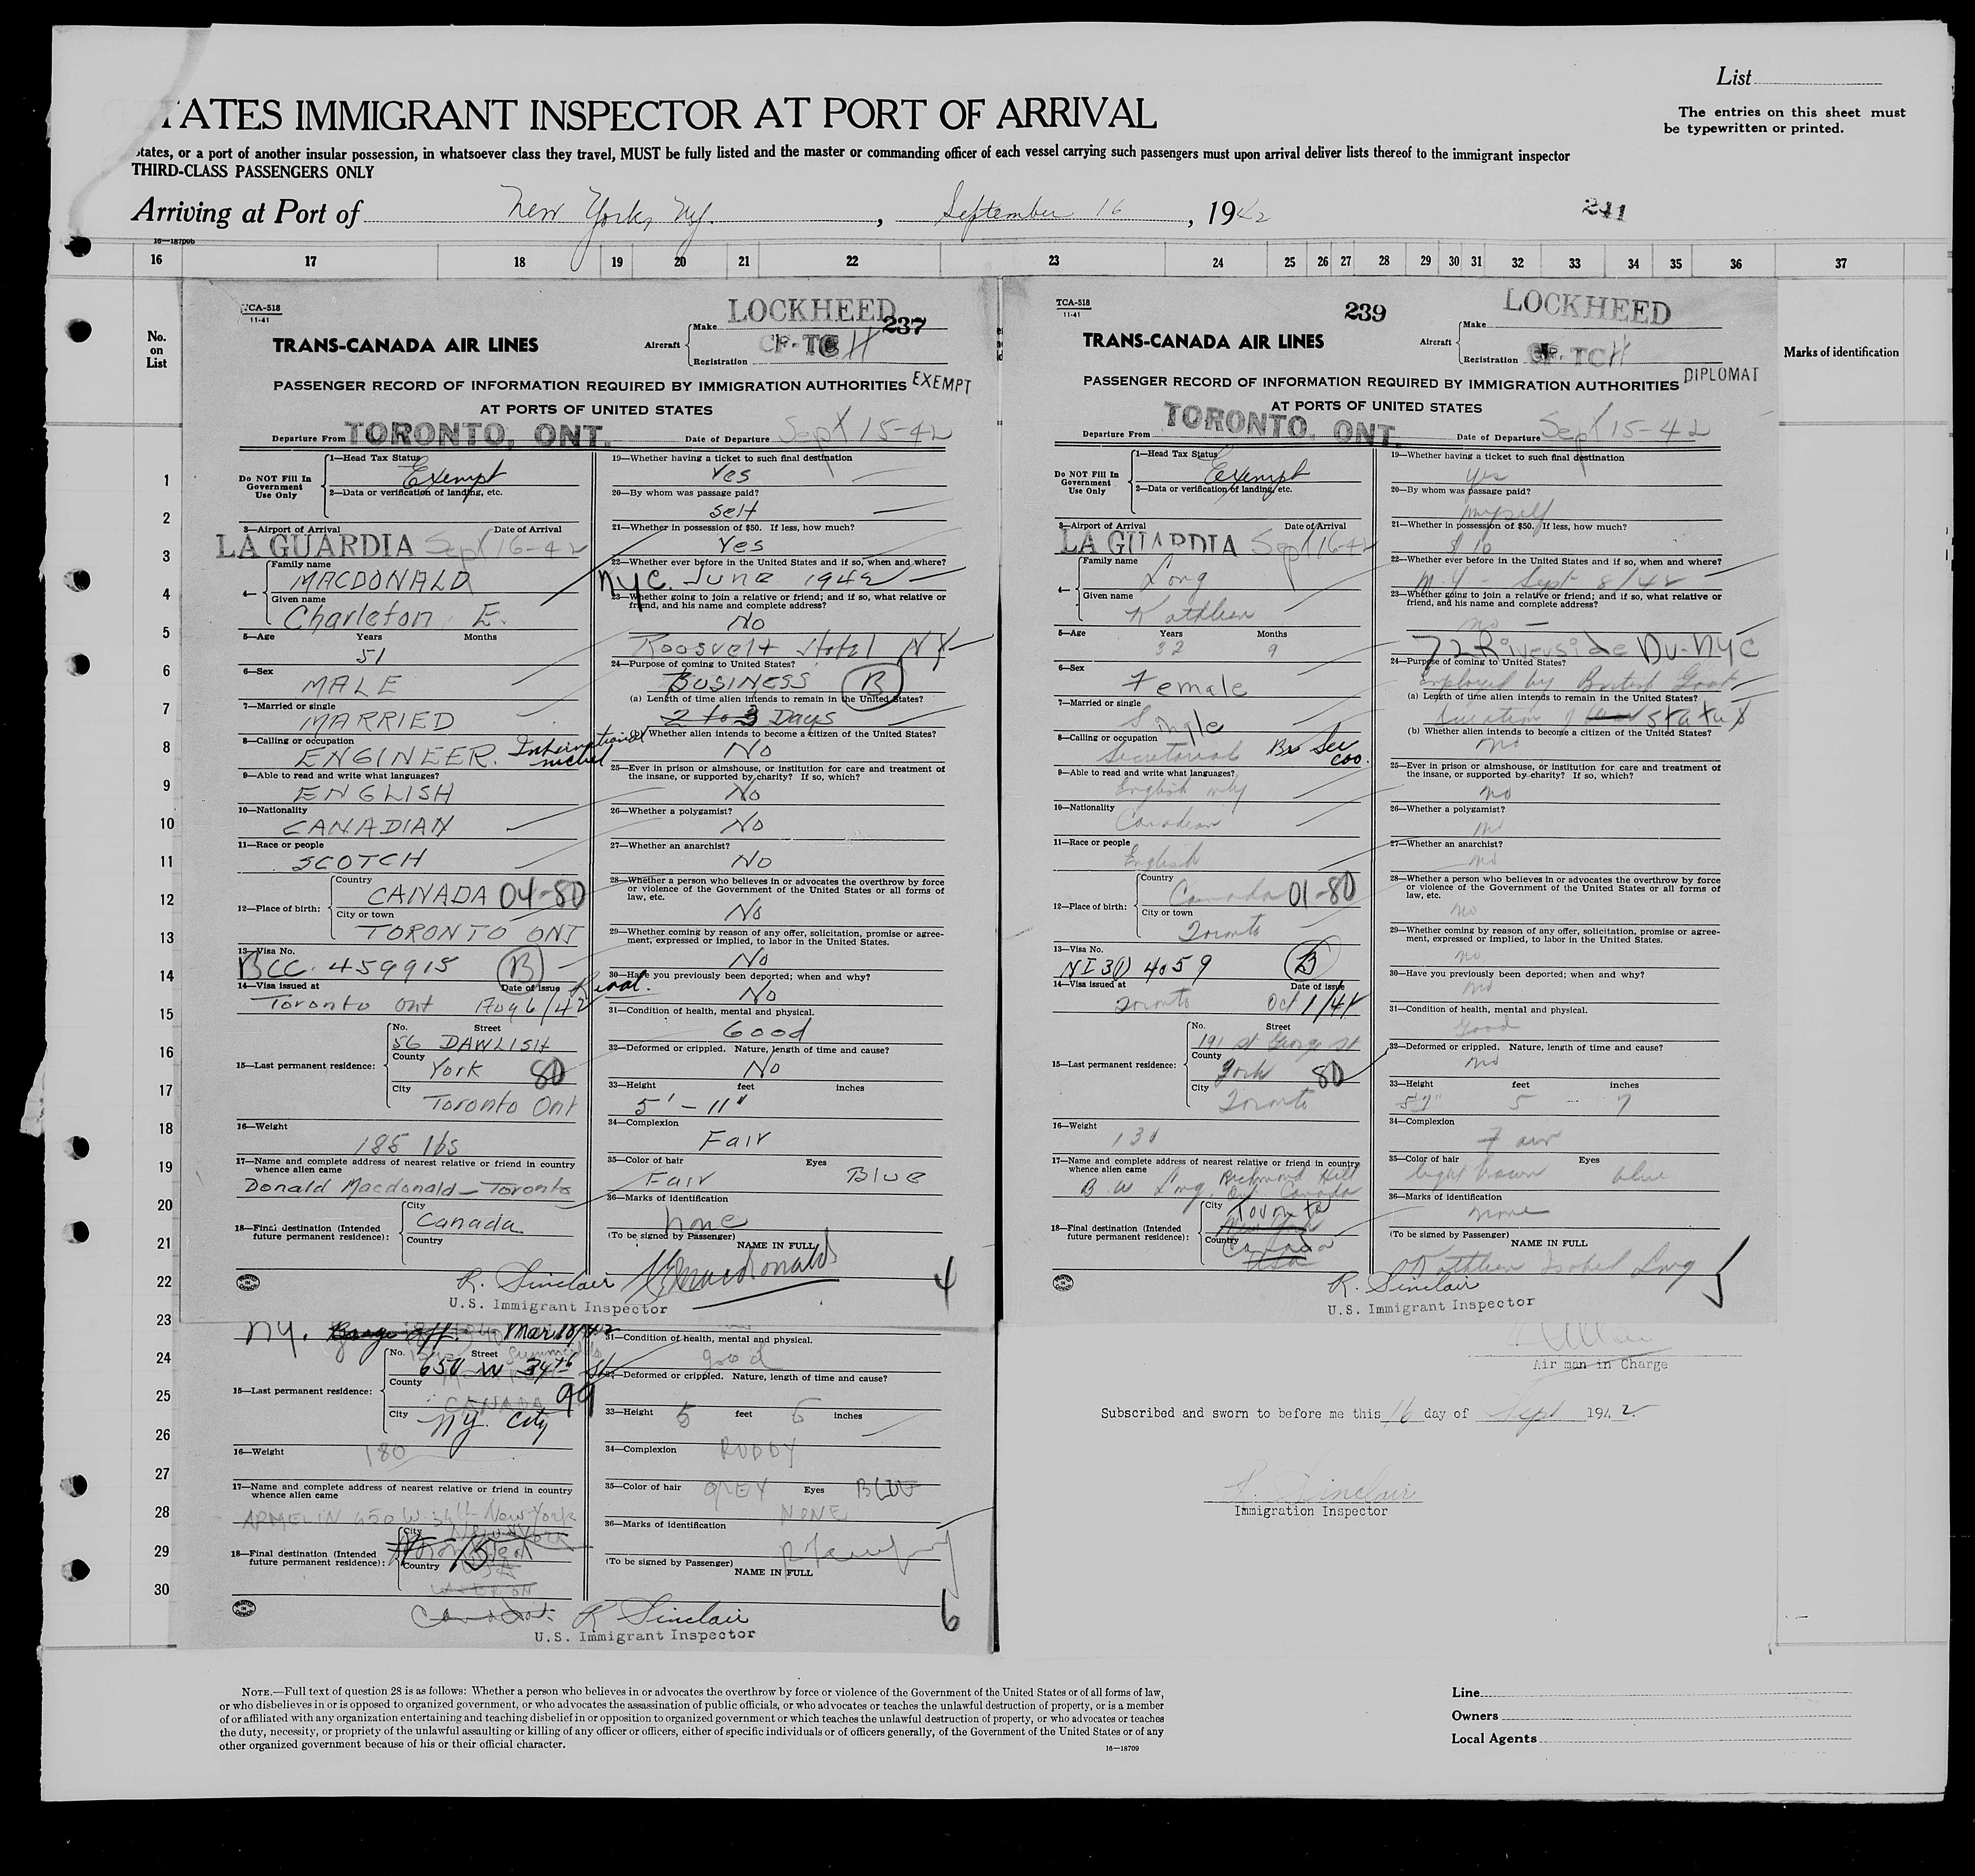 List
The entries on this sheet must
be typewritten or printed.
TATES IMMIGRANT INSPECTOR AT PORT OF ARRIVAL
tates, or a port of another insular possession, in whatsoever class they travel, MUST be fully listed and the master or commanding officer of each vessel carrying such passengers must upon arrival deliver lists thereof to the immigrant inspector
THIRD-CLASS PASSENGERS ONLY
Arriving at Port of New York, NY. , September 16 , 1942
241
16—18709b
16 17 18 19 20 21 22 23 24 25 26 27 28 29 30 31 32 33 34 35 36 37
No.
on
List
Marks of identification
1
2
3
4
5
6
7
8
9
10
11
12
13
14
15
16
17
18
19
20
21
22
23
24
25
26
27
28
29
30
TCA-518
11-41
LOCKHEED
237
TRANS-CANADA AIR LINES
Aircraft
Make
Registration CF-TCH
PASSENGER RECORD OF INFORMATION REQUIRED BY IMMIGRATION AUTHORITIES
EXEMPT
AT PORTS OF UNITED STATES
Departure From TORONTO, ONT. Date of Departure Sept 15-42
Do NOT Fill In
Government
Use Only
1—Head Tax Status
Exempt
2—Data or verification of landing, etc.
3—Airport of Arrival Date of Arrival
LA GUARDIA Sept 16-42
4—
Family name
MACDONALD
Given name
Charleton E.
5—Age Years Months
51
6—Sex
MALE
7—Married or single
MARRIED
8—Calling or occupation
ENGINEER. International
nickel
9—Able to read and write what languages?
ENGLISH
10—Nationality
CANADIAN
11—Race or people
SCOTCH
12—Place of birth:
Country
CANADA 04-80
City or town
TORONTO ONT
13—Visa No.
BCC. 459915 B
14—Visa issued at Date of issue
Toronto Ont
15—Last permanent residence:
No. Street
56 DAWLISH
County
York 80
City
Toronto Ont
16—Weight
185 lbs
17—Name and complete address of nearest relative or friend in country
whence alien came
Donald Macdonald — Toronto
18—Final destination (Intended
future permanent residence):
City
Canada
Country
19—Whether having a ticket to such final destination
Yes
20—By whom was passage paid?
self
21—Whether in possession of $50. If less, how much?
Yes
22—Whether ever before in the United States and if so, when and where?
NYC. June 1942
23—Whether going to join a relative or friend; and if so, what relative or
friend, and his name and complete address?
No
Roosvelt Hotel NY
24—Purpose of coming to United States?
BUSINESS B
(a) Length of time alien intends to remain in the United States?
2 to 3 Days
(b) Whether alien intends to become a citizen of the United States?
No
25—Ever in prison or almshouse, or institution for care and treatment of
the insane, or supported by charity? If so, which?
No
26—Whether a polygamist?
No
27—Whether an anarchist?
No
28—Whether a person who believes in or advocates the overthrow by force
or violence of the Government of the United States or all forms of
law, etc.
No
29—Whether coming by reason of any offer, solicitation, promise or agree-
ment, expressed or implied, to labor in the United States.
No
30—Have you previously been deported; when and why?
No
31—Condition of health, mental and physical.
Good
32—Deformed or crippled. Nature, length of time and cause?
No
33—Height feet inches
5' - 11"
34—Complexion
Fair
35—Color of hair Eyes
Fair Blue
36—Marks of identification
none
(To be signed by Passenger)
NAME IN FULL
R. Sinclair
U.S. Immigrant Inspector
4
TCA-518
11-41
239
LOCKHEED
TRANS-CANADA AIR LINES
Aircraft
Make
Registration CF-TCH
PASSENGER RECORD OF INFORMATION REQUIRED BY IMMIGRATION AUTHORITIES
DIPLOMAT
AT PORTS OF UNITED STATES
Departure From TORONTO, ONT. Date of Departure Sept 15-42
Do NOT Fill In
Government
Use Only
1—Head Tax Status
Exempt
2—Data or verification of landing, etc.
3—Airport of Arrival Date of Arrival
LA GUARDIA Sept 16-42
4—
Family name
Long
Given name
Kathleen
5—Age Years Months
32 9
6—Sex
Female
7—Married or single
Single
8—Calling or occupation
Secretarial
9—Able to read and write what languages?
English only
10—Nationality
Canadian
11—Race or people
English
12—Place of birth:
Country
Canada 01-80
City or town
Toronto
13—Visa No.
4059 B
14—Visa issued at Date of issue
Toronto Oct 1/41
15—Last permanent residence:
No. Street
191 St George St
County
York 80
City
Toronto
16—Weight
17—Name and complete address of nearest relative or friend in country
whence alien came
B. W. Long, Richmond Hill
Ont Canada
18—Final destination (Intended
future permanent residence):
City
Toronto
New York
Country
Canada
USA
19—Whether having a ticket to such final destination
yes
20—By whom was passage paid?
myself
21—Whether in possession of $50. If less, how much?
$10
22—Whether ever before in the United States and if so, when and where?
N.Y - Sept 8/42
23—Whether going to join a relative or friend; and if so, what relative or
friend, and his name and complete address?
no —
72 Riverside Dv-NYC
24—Purpose of coming to United States?
Employed by British Govt
(a) Length of time alien intends to remain in the United States?
duration of status
(b) Whether alien intends to become a citizen of the United States?
no
25—Ever in prison or almshouse, or institution for care and treatment of
the insane, or supported by charity? If so, which?
no
26—Whether a polygamist?
no
27—Whether an anarchist?
no
28—Whether a person who believes in or advocates the overthrow by force
or violence of the Government of the United States or all forms of
law, etc.
no
29—Whether coming by reason of any offer, solicitation, promise or agree-
ment, expressed or implied, to labor in the United States.
no
30—Have you previously been deported; when and why?
no
31—Condition of health, mental and physical.
Good
32—Deformed or crippled. Nature, length of time and cause?
no
33—Height feet inches
5'7" 5 7
34—Complexion
Fair
35—Color of hair Eyes
light brown blue
36—Marks of identification
none
(To be signed by Passenger)
NAME IN FULL
Kathleen Isobel Long
R. Sinclair
U.S. Immigrant Inspector
5
NY. Mar 18/42
15—Last permanent residence:
No. Street
650 W 34th St
County
CANADA 99
City
NY. City
16—Weight
180
17—Name and complete address of nearest relative or friend in country
whence alien came
ARMELIN 450 W. 34th New York
18—Final destination (Intended
future permanent residence):
City
Country
31—Condition of health, mental and physical.
good
32—Deformed or crippled. Nature, length of time and cause?
33—Height 5 feet 6 inches
34—Complexion RUDDY
35—Color of hair GREY Eyes BLUE
36—Marks of identification NONE
(To be signed by Passenger)
NAME IN FULL
R Sinclair
U.S. Immigrant Inspector
6
Air man in Charge
Subscribed and sworn to before me this 16 day of Sept 1942.
R. Sinclair
Immigration Inspector
NOTE.—Full text of question 28 is as follows: Whether a person who believes in or advocates the overthrow by force or violence of the Government of the United States or of all forms of law,
or who disbelieves in or is opposed to organized government, or who advocates the assassination of public officials, or who advocates or teaches the unlawful destruction of property, or is a member
of or affiliated with any organization entertaining and teaching disbelief in or opposition to organized government or which teaches the unlawful destruction of property, or who advocates or teaches
the duty, necessity, or propriety of the unlawful assaulting or killing of any officer or officers, either of specific individuals or of officers generally, of the Government of the United States or of any
other organized government because of his or their official character.
16—18709
Line
Owners
Local Agents